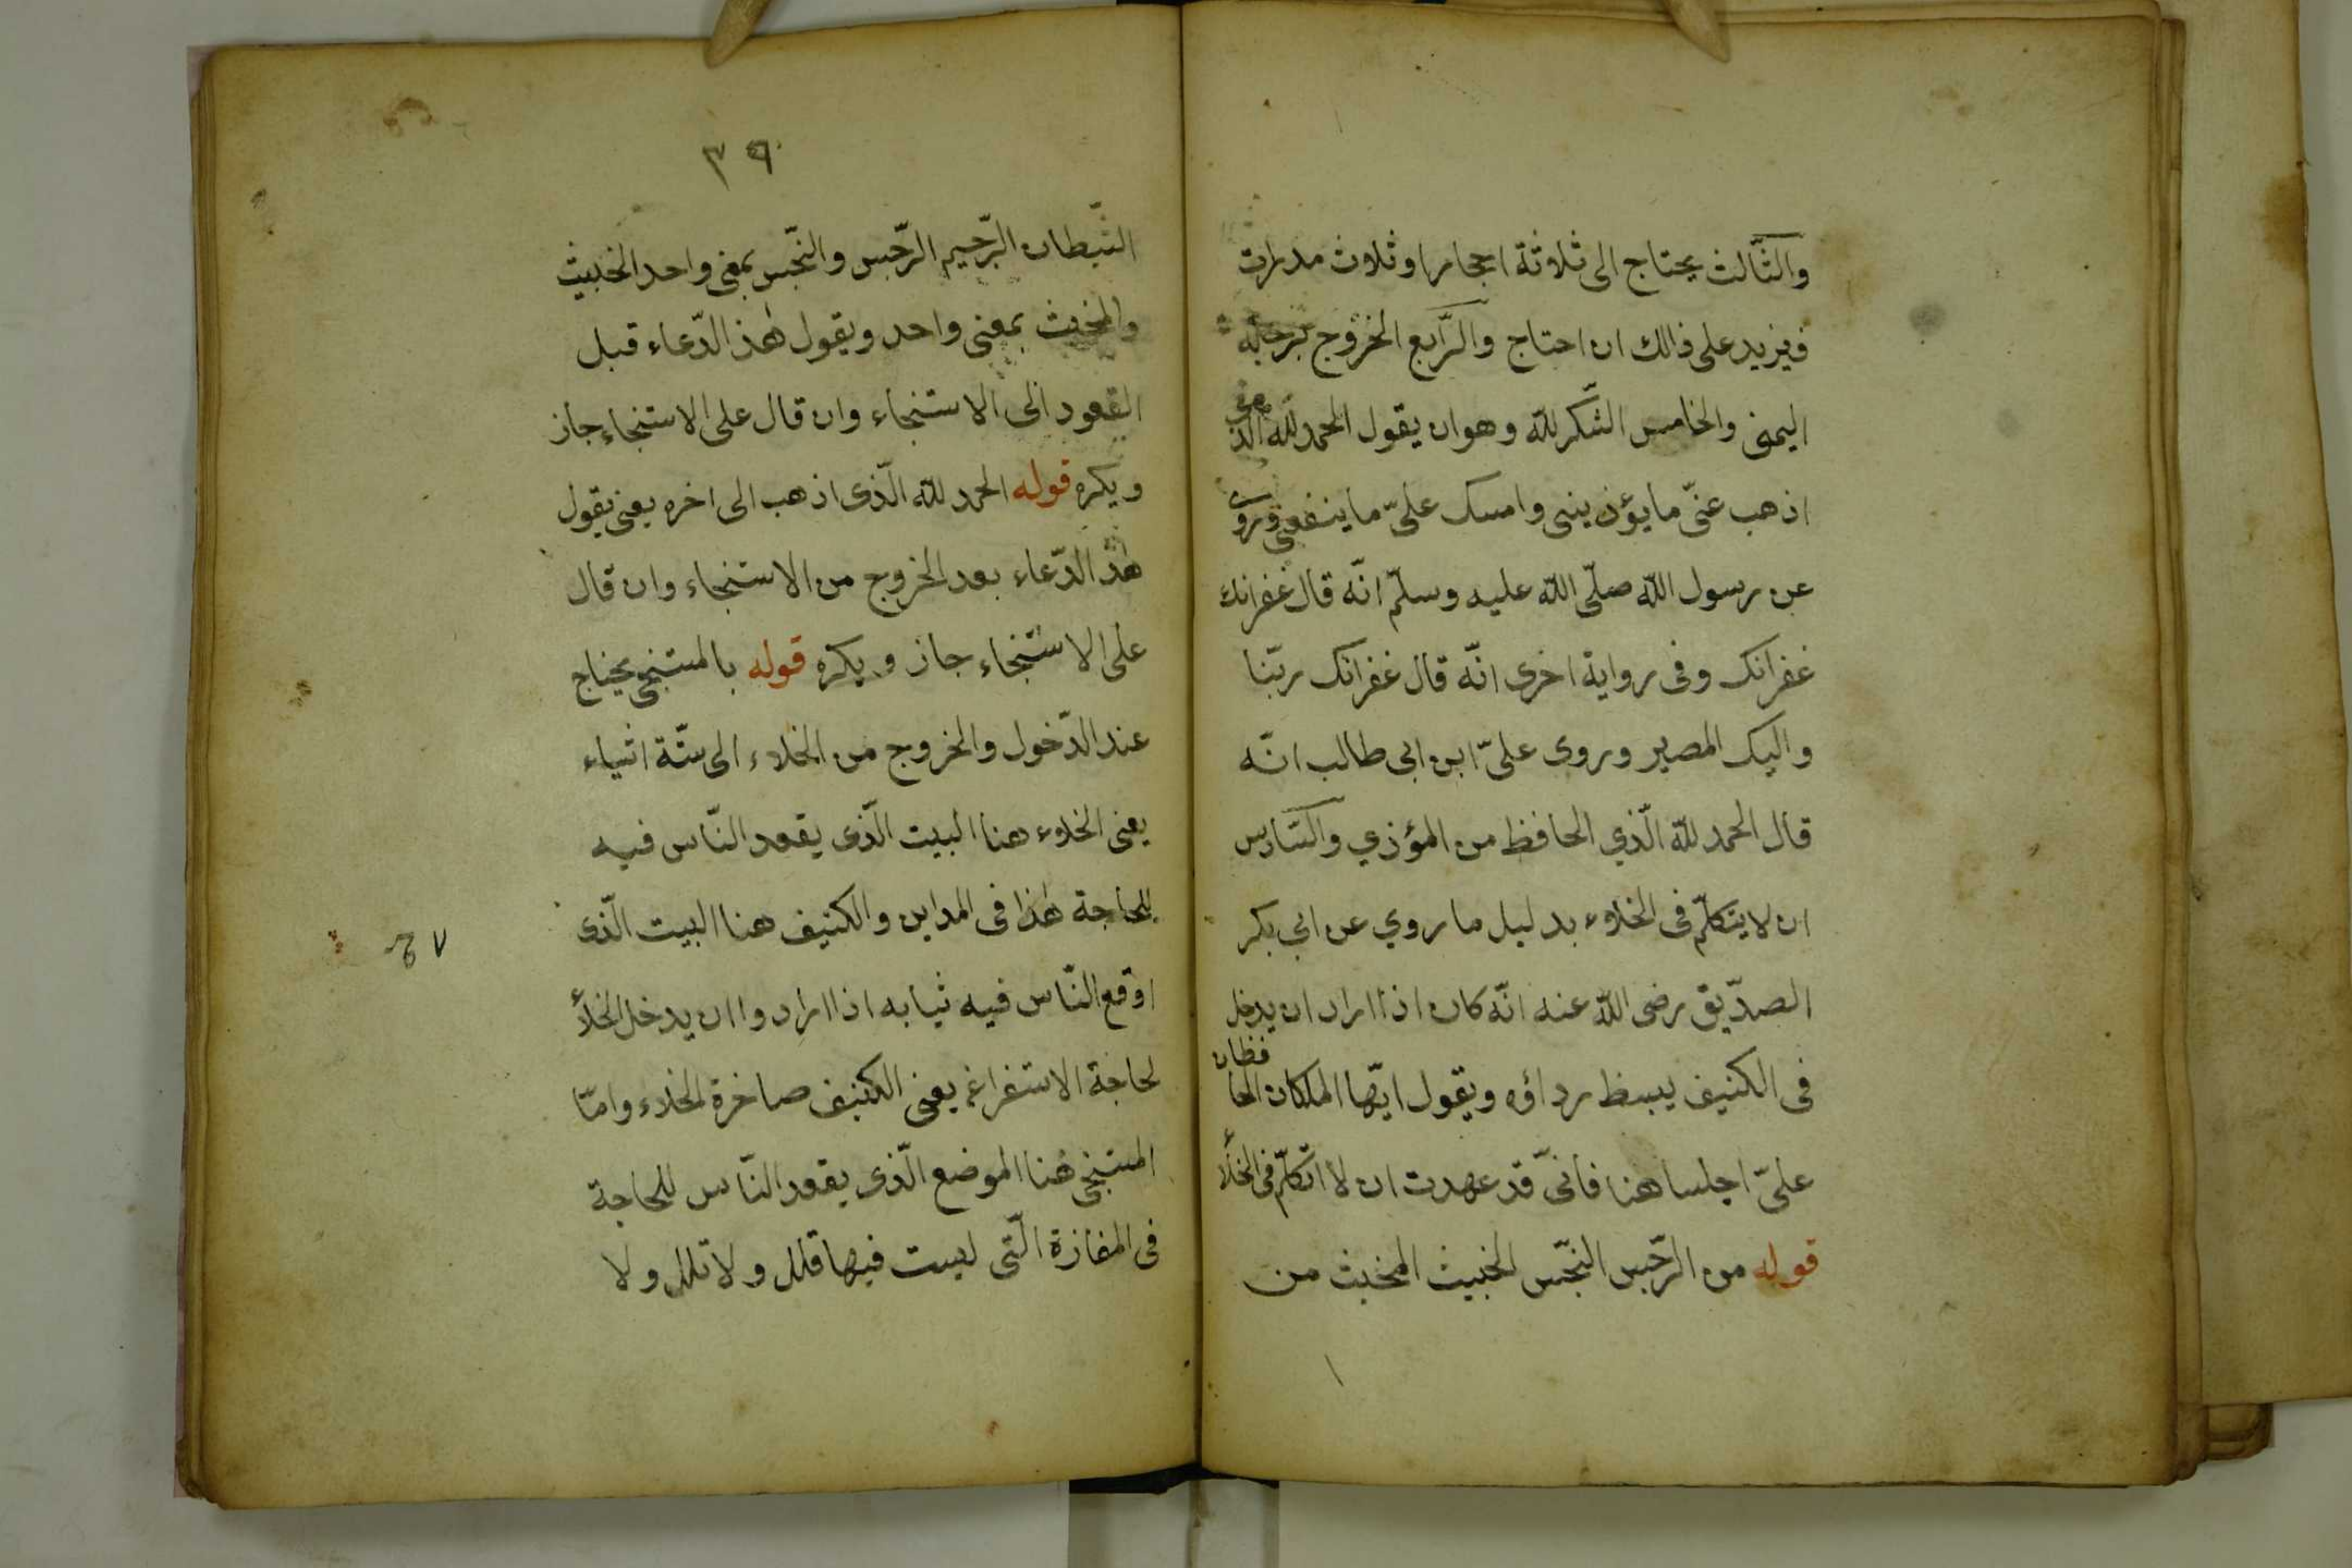 والثّالث يحتاج الى ثلاثة احجار او ثلاث مدرات
فيزيد على ذالك ان احتاج والرّابع الخروج برجله
اليمنى والخامس الشّكر للّه وهو ان يقول الحمد للّه الّذى
اذهب عنّى ما يؤذيننى وامسك علىّ ما ينفعنى وروى
عن رسول اللّه صلّى اللّه عليه وسلّم انّه قال غفرانك
غفرانك وفى رواية اخرى انّه قال غفرانك ربّنا
واليك المصير وروى علىّ ابن ابى طالب انّه
قال الحمد للّه الّذي الحافظ من المؤذي والسّادس
ان لا يتكلّم فى الخلاء بدليل ما روي عن ابي بكر
الصدّيق رضى اللّه عنه انّه كان اذا اراد ان يدخل
فى الكنيف يبسط رداؤه ويقول ايّها الملكان الحافظان
علىّ اجلسا هنا فانّى قد عهدت ان لا اتكلّم فى الخلأ
قوله من الرّجس النجّس الخبيث المخبث من
٣٩
الشّيطان الرّجيم الرّجس والنجّس بمعنى واحد الخبيث
والمخبث بمعنى واحد ويقول هٰذ الدّعاء قبل
القعود الى الاستنجاء وان قال على الاستنجاء جاز
ويكره قوله الحمد للّه الّذى اذهب الى اخره يعنى يقول
هٰذ الدّعاء بعد الخروج من الاستنجاء وان قال
على الاستنجاء جاز ويكره قوله بالمستنجى يحتاج
عند الدّخول والخروج من الخلاء الى ستّة اشياء
يعنى الخلاء هنا البيت الّذى يقعد النّاس فيه
للحاجة هٰذا فى المداين والكنيف هنا البيت الّذى
اوقع النّاس فيه ثيابه اذا ارادوا ان يدخل الخلأ
لحاجة الاستفراغ يعنى الكنيف صاخرة الخلاء وامّا
المستنجى هُنا الموضع الّذى يقعد النّاس للحاجة
فى المفازة الّتى ليست فيها قلل ولا تلل ولا